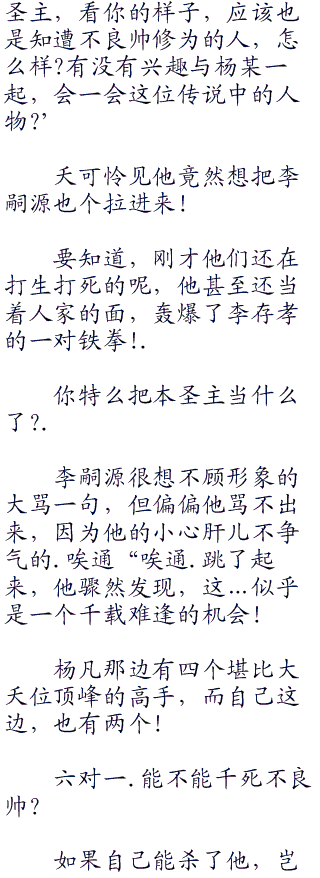 圣主，看你的样子，应该也
是知遭不良帅修为的人，怎
么样?有没有兴趣与杨某一
起，会一会这位传说中的人
物?’
夭可怜见他竟然想把李
嗣源也个拉进来！
要知道，刚才他们还在
打生打死的呢，他甚至还当
着人家的面，轰爆了李存孝
的一对铁拳!.
你特么把本圣主当什么
了?.
李嗣源很想不顾形象的
大骂一句，但偏偏他骂不出
来，因为他的小心肝儿不争
气的.唉通“唉通.跳了起
来，他骤然发现，这…似乎
是一个千载难逢的机会！
杨凡那边有四个堪比大
夭位顶峰的高手，而自己这
边，也有两个！
六对一.能不能千死不良
帅？
如果自己能杀了他，岂